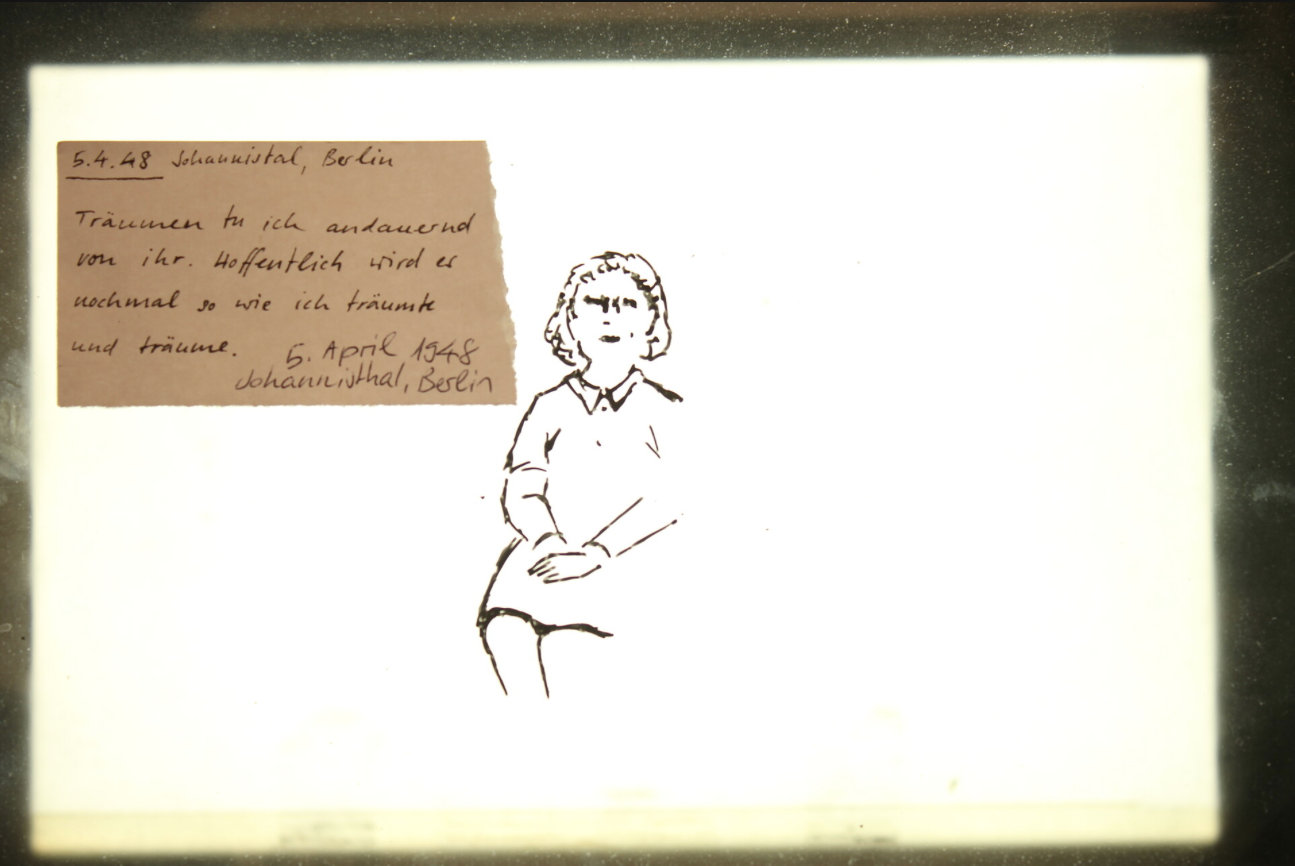 5.4.48 Johannistal, Berlin
Träumen tu ich andauernd
von ihr. Hoffentlich wird es
nochmal so wie ich träumte
und träume.
5. April 1948
Johannisthal, Berlin